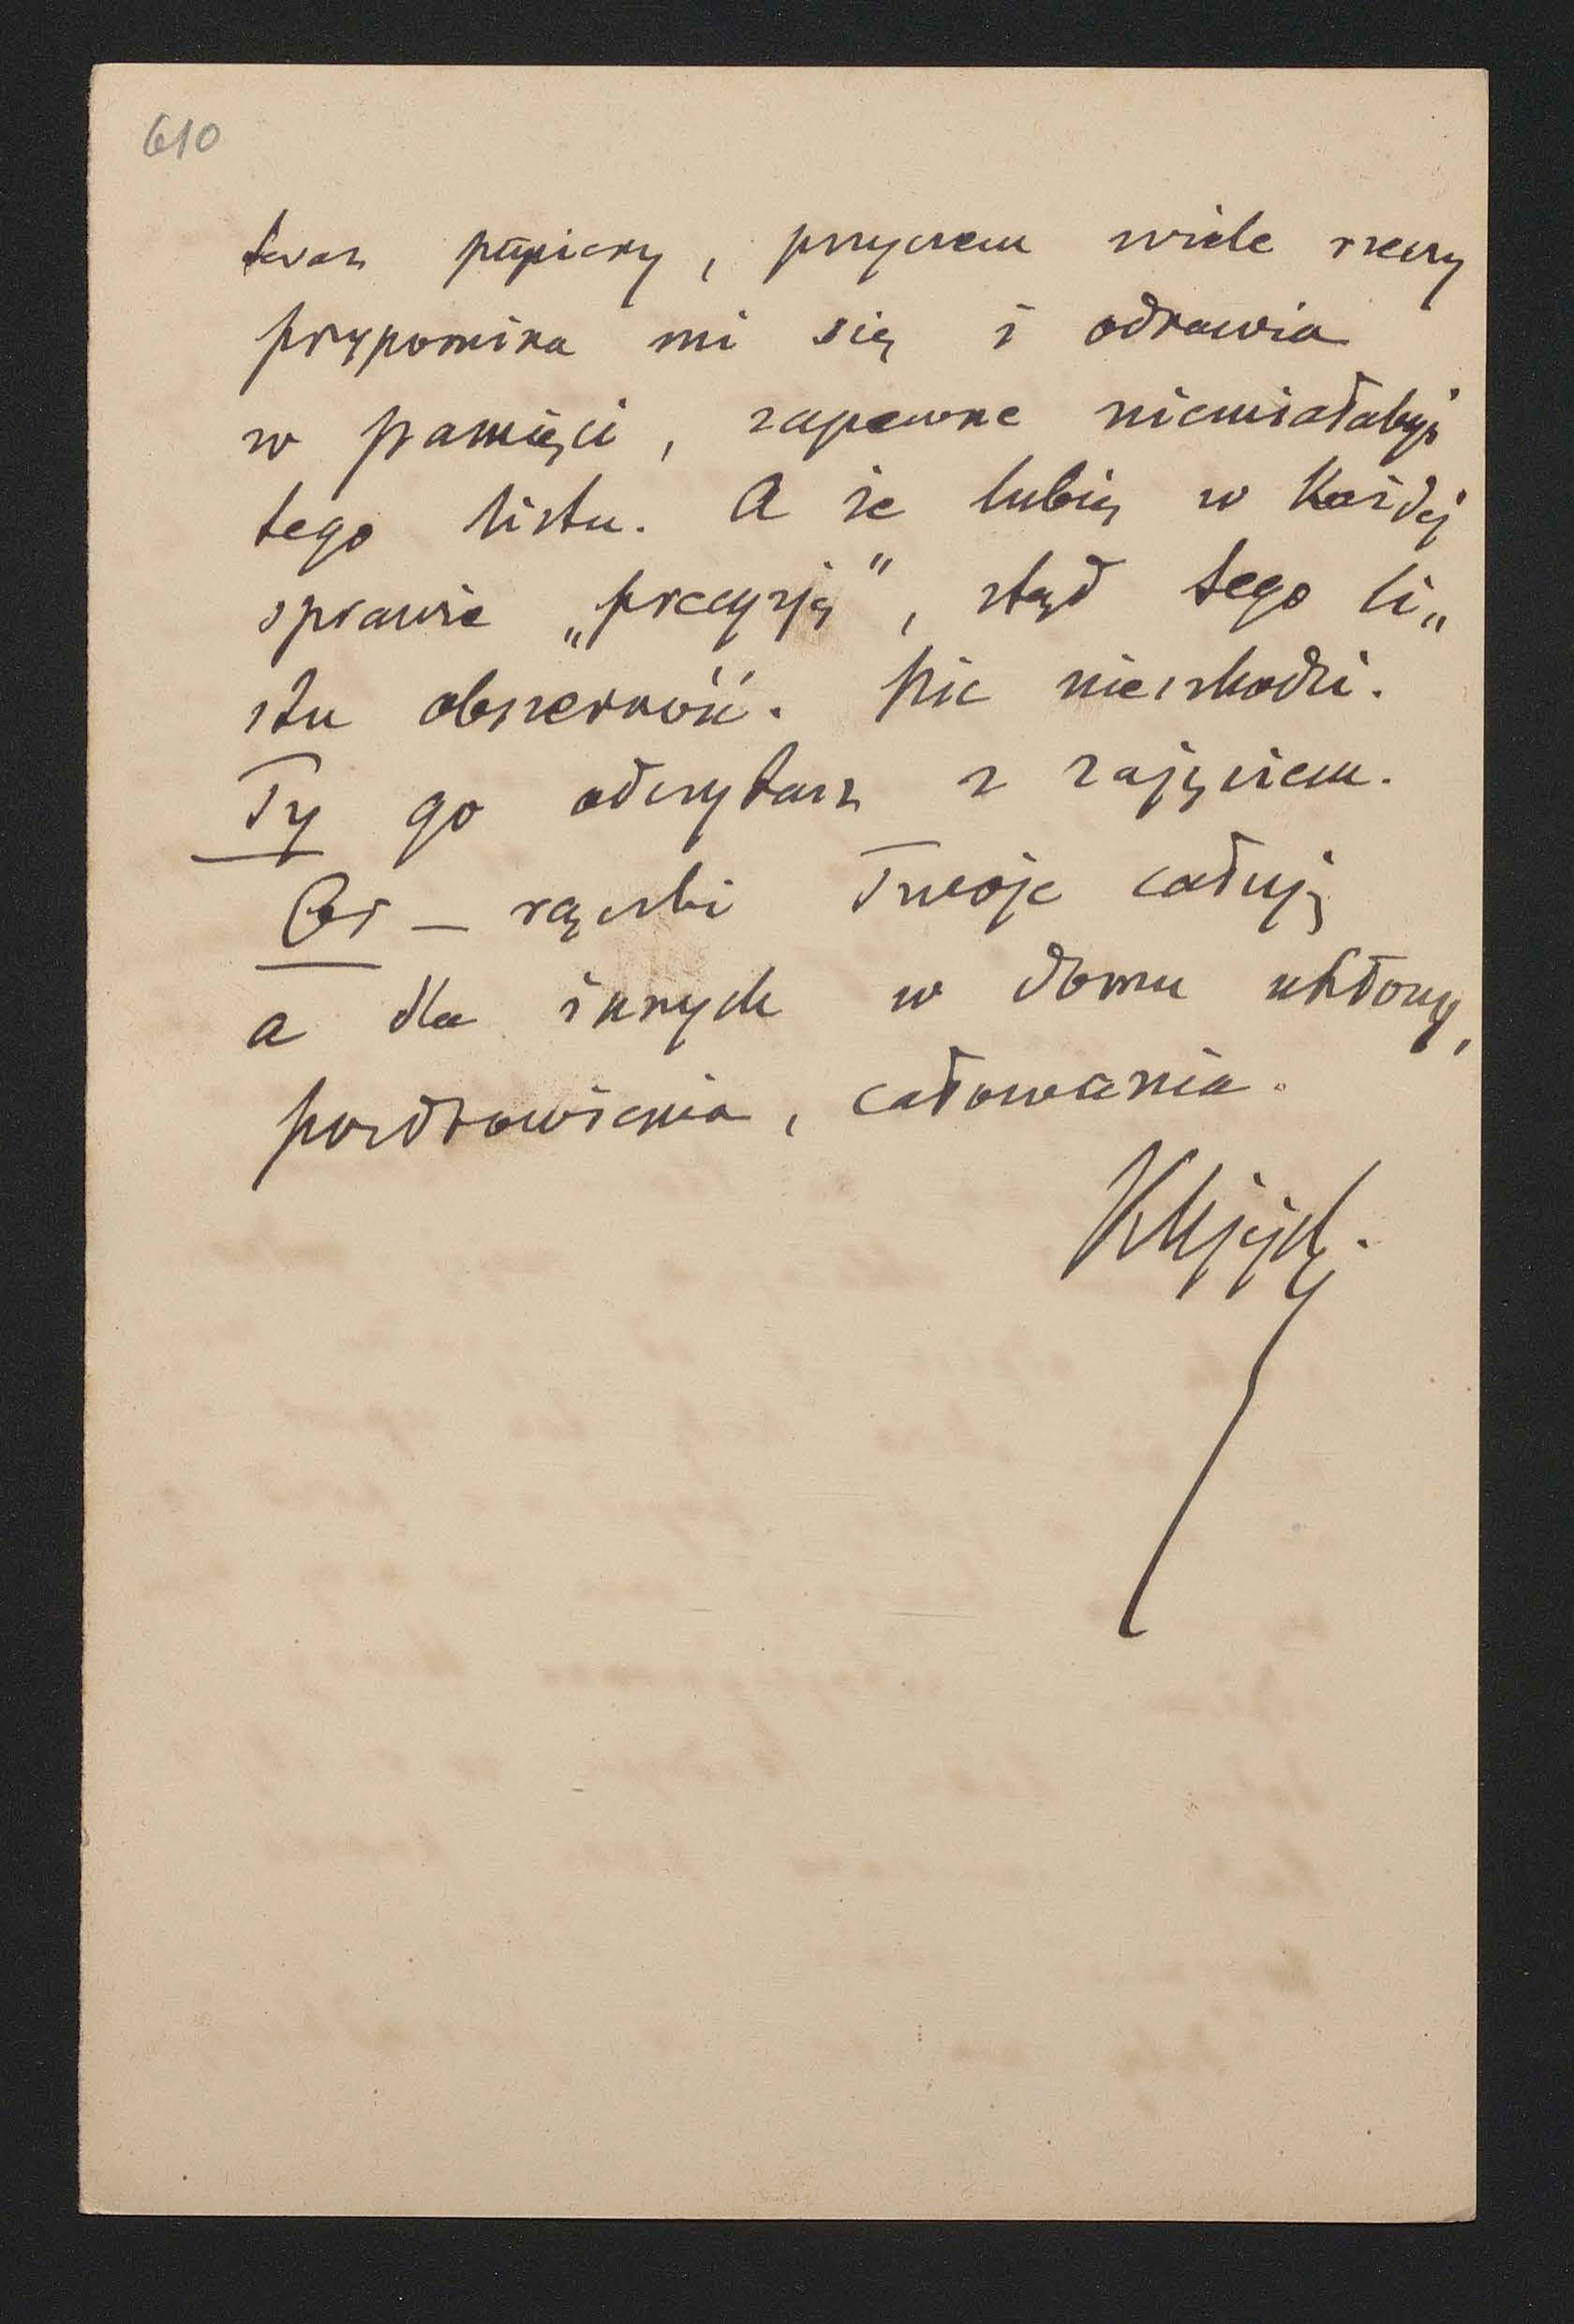 610
teraz papiery, przyczem wiele rzeczy
przypomina mi się i odnawia
w pamięci, zapewne niemiałabyś
tego listu. A że lubię w każdej
sprawie „precyzję", stąd tego li„
stu obszerność. Nic nieszkodzi.
Ty go odczytasz z zajęciem.
— rączki Twoje całuję
a dla innych w domu ukłony,
pozdrowienia, całowania.